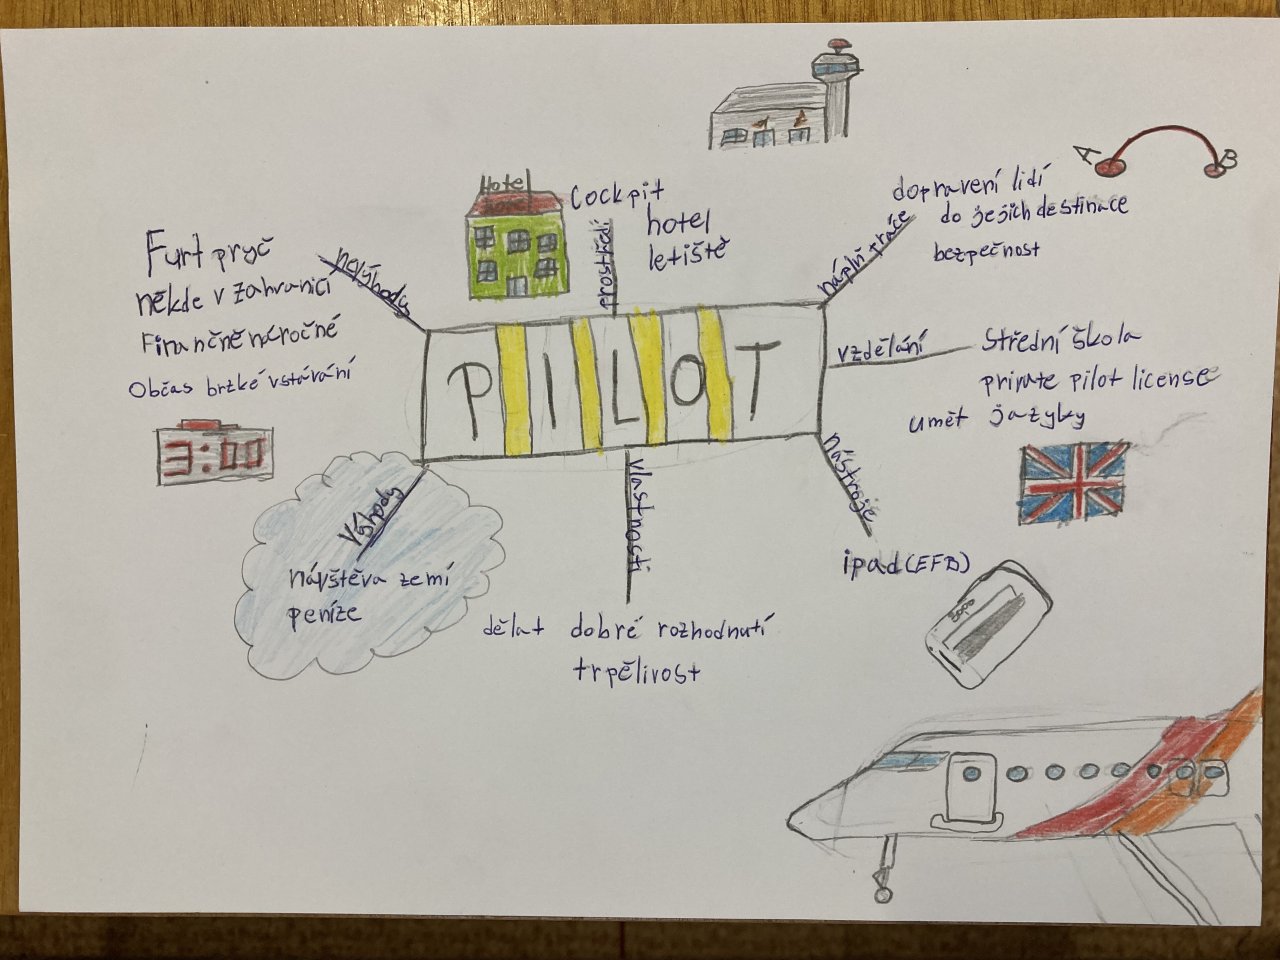 Hotel
Cockpit
hotel
letiště
prostředí
A
B
dopravení lidí
do jejich destinace
bezpečnost
náplň práce
Furt pryč
někde v zahraničí
Finančně náročné
Občas brzké vstávání
nevýhody
3:00
PILOT
vzdělání
Střední škola
private pilot license
umět jazyky
Výhody
návštěva zemí
peníze
vlastnosti
dělat dobré rozhodnutí
trpělivost
nástroje
ipad (EFB)